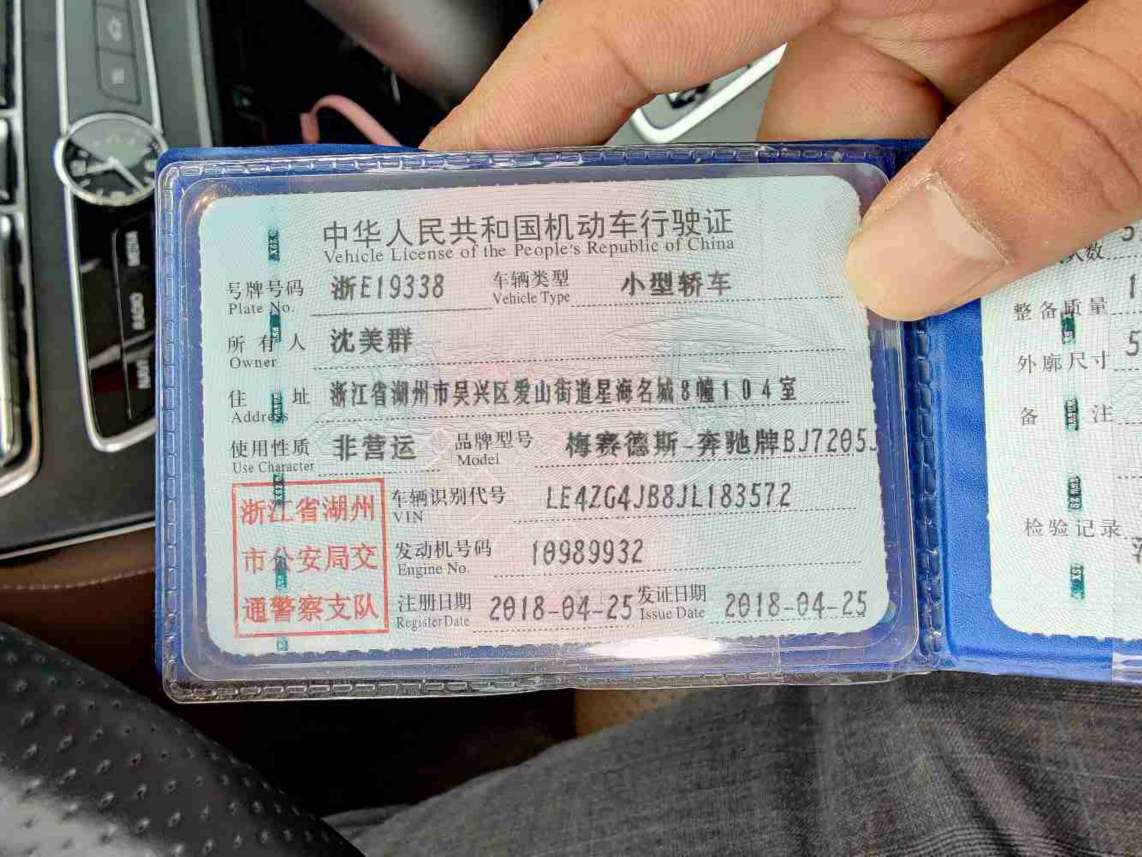 中华人民共和国机动车行驶证
Vehicle License of the People's Republic of China
号牌号码 浙E19338 车辆类型 小型轿车
Plate No. Vehicle Type
所有人 沈美群
Owner
住址 浙江省湖州市吴兴区爱山街道星海名城8幢104室
Address
使用性质 非营运 品牌型号 梅赛德斯-奔驰牌BJ7205
Use Character Model
浙江省湖州
市公安局交
通警察支队
车辆识别代号 LE4ZG4JB8JL183572
VIN
发动机号码 10989932
Engine No.
注册日期 2018-04-25 发证日期 2018-04-25
Register Date Issue Date
人数 5
整备质量 1
外廓尺寸 5
备注
检验记录
MEDIA
RADIO
NAVI